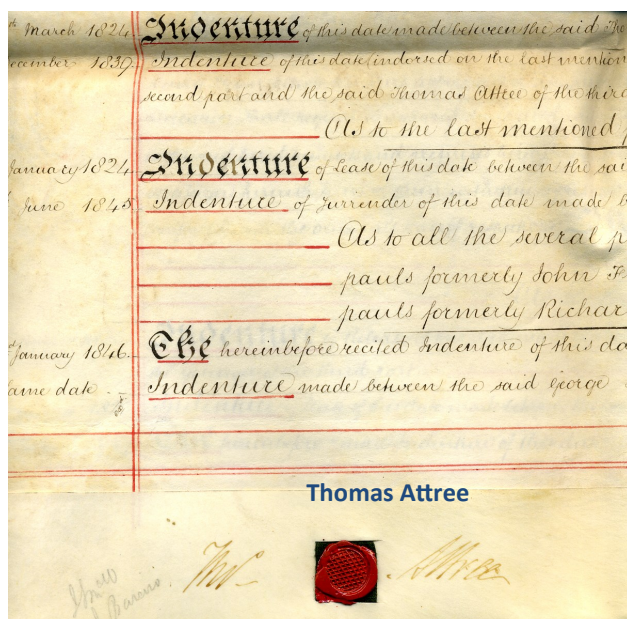 March 1824 Indenture of this date made between the said Tho
ecember 1839 Indenture of this date (indorsed on the last mention
second part and the said Thomas Attree of the third
As to the last mentioned p
January 1824 Indenture of Lease of this date between the sai
June 1845 Indenture of Surrender of this date made b
As to all the several p
pauls formerly John
pauls formerly Richar
January 1846 The hereinbefore recited Indenture of this da
same date Indenture made between the said George
Thomas Attree
Thos Attree